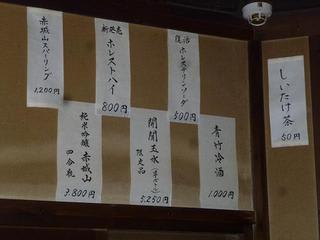 復活
ホレステリンソーダ
500円
新発売
ホレストハイ
800円
赤城山スパーリング
1,200円
青竹冷酒
1,000円
開聞玉水
限定品
5,250円
純米吟醸 赤城山
四合瓶
3,800円
しいたけ茶
50円